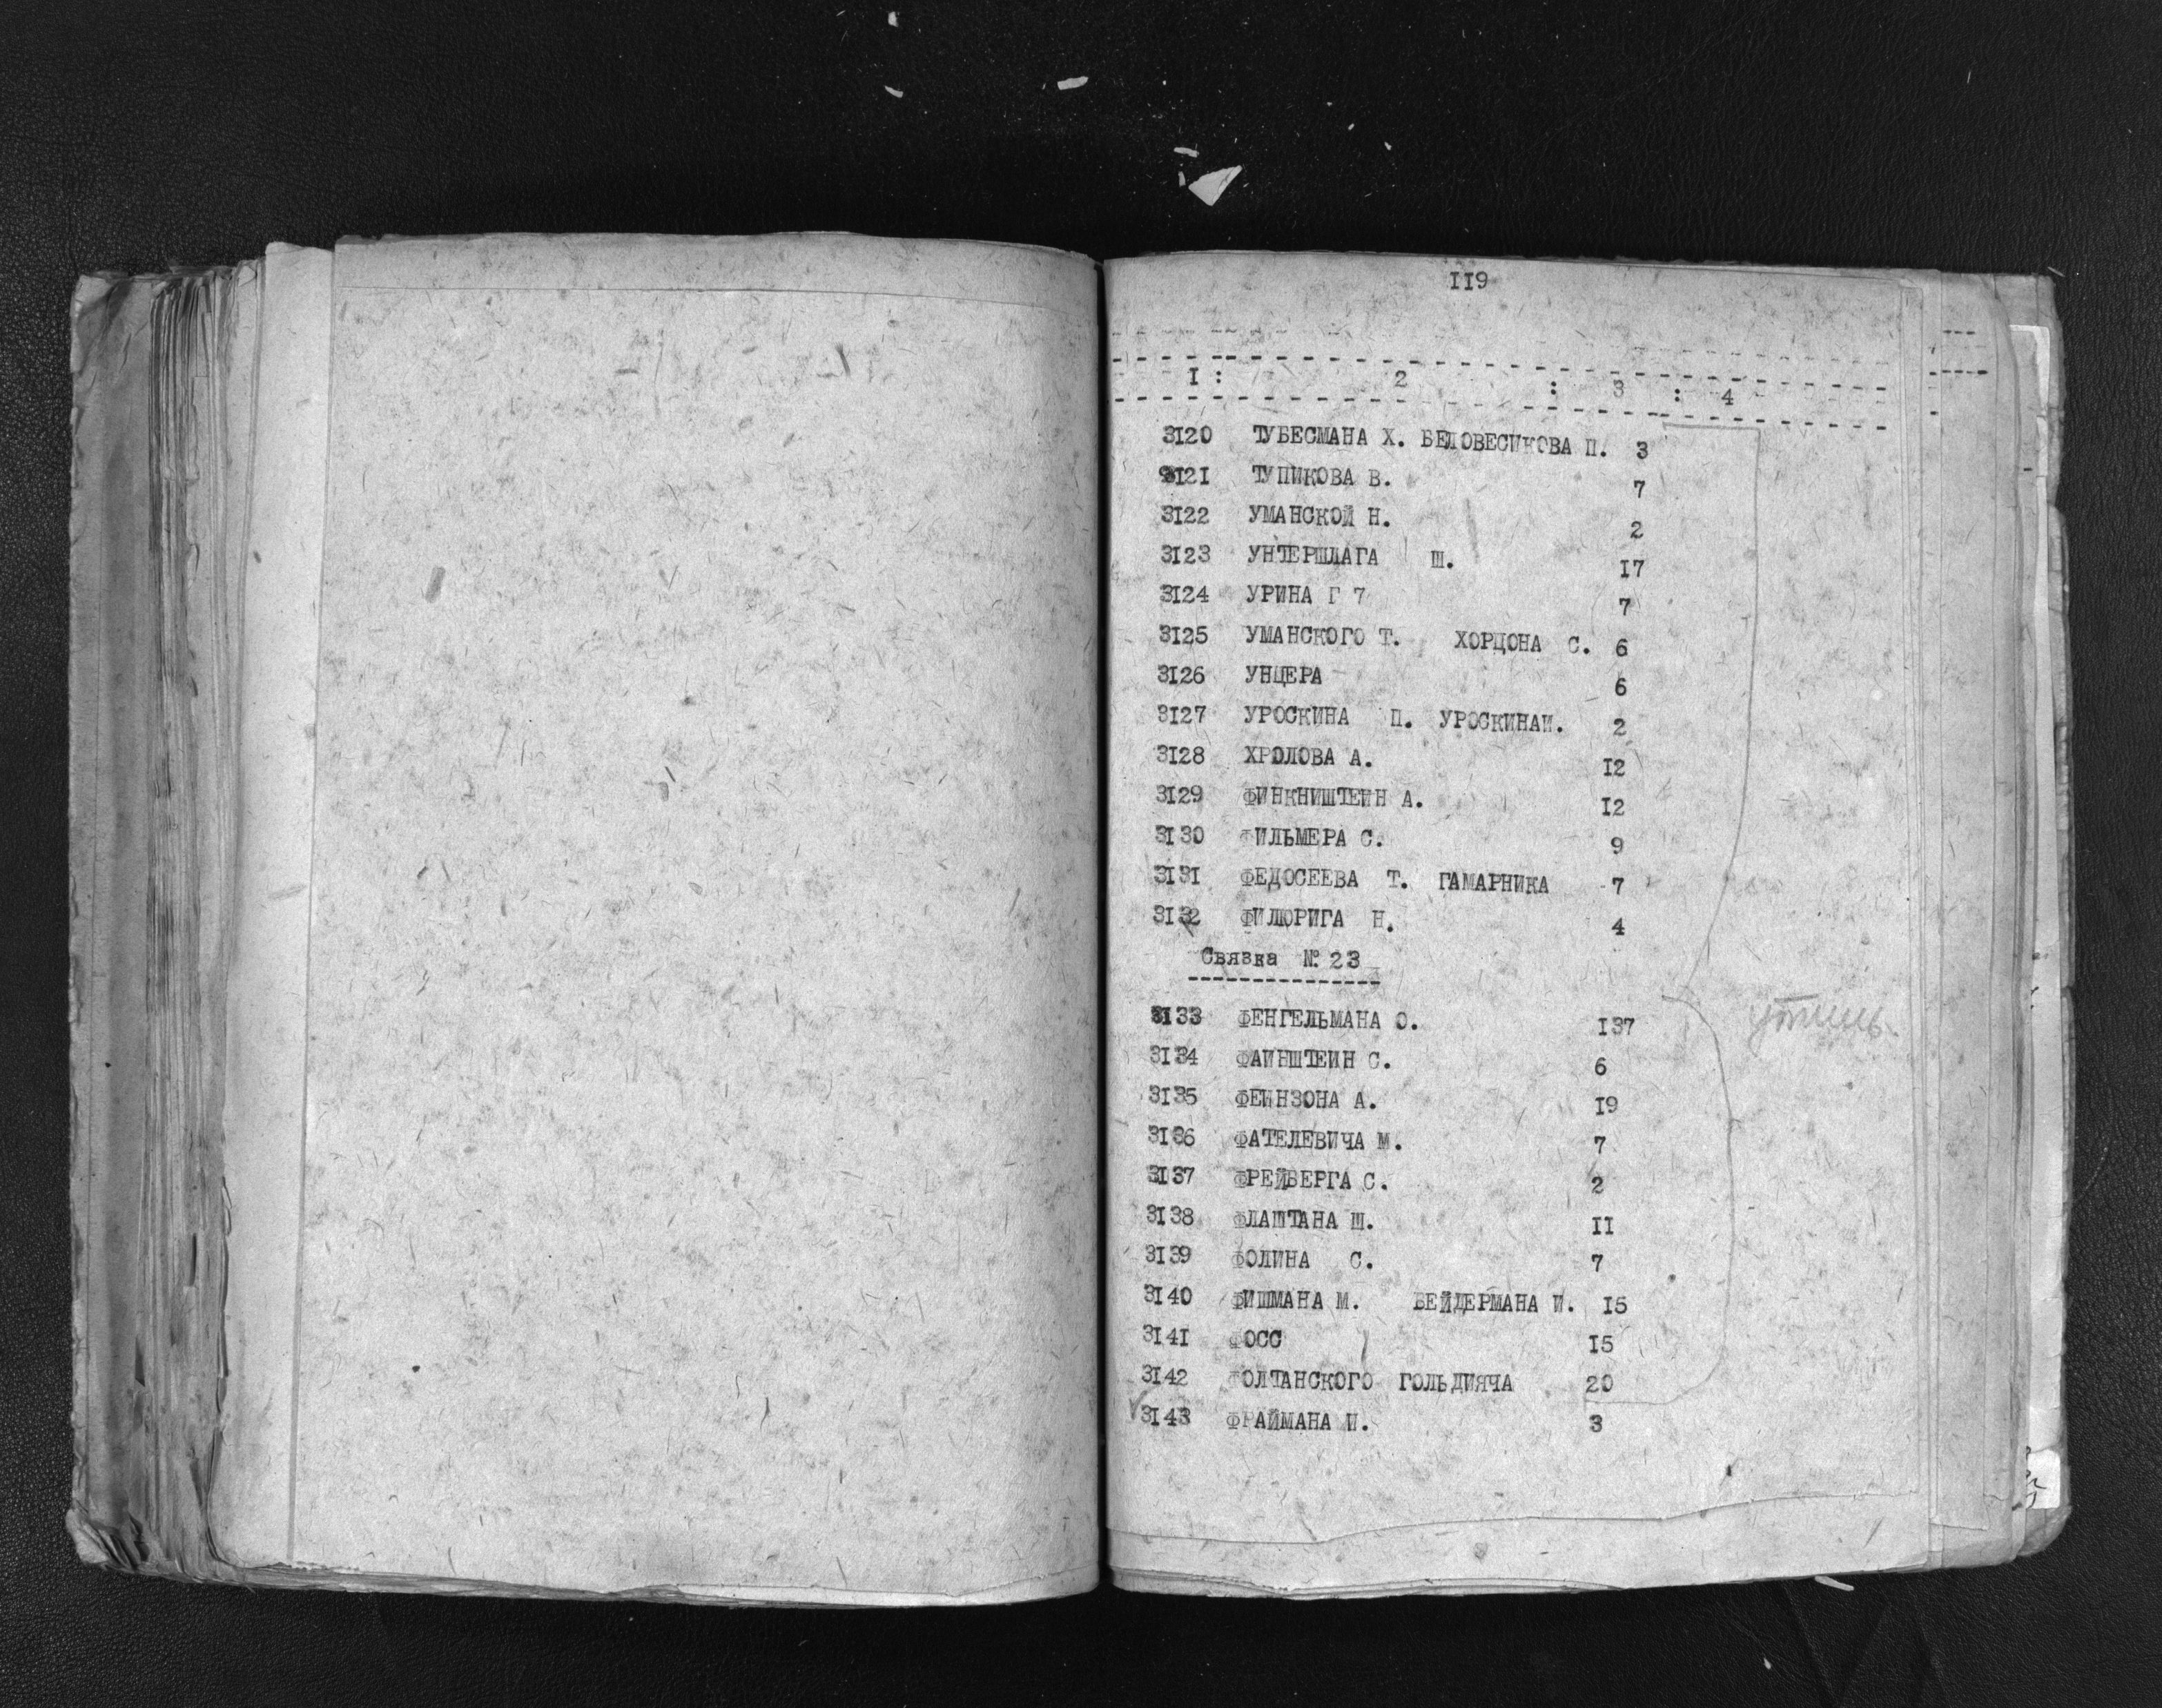 119
1 : 2 : 3 : 4
3120 ТУБЕСМАНА Х. БЕЛОВЕСИКОВА П. 3
3121 ТУПИКОВА В. 7
3122 УМАНСКОЙ Н. 2
3123 УНТЕРШЛАГА Ш. 17
3124 УРИНА Г 7 7
3125 УМАНСКОГО Т. ХОРДОНА С. 6
3126 УНЦЕРА 6
3127 УРОСКИНА П. УРОСКИНАИ. 2
3128 ХРОЛОВА А. 12
3129 ФИНКНИШТЕИН А. 12
3130 ФИЛЬМЕРА С. 9
3131 ФЕДОСЕЕВА Т. ГАМАРНИКА 7
3132 ФИЛЮРИГА Н. 4
Связка № 23
3133 ФЕНГЕЛЬМАНА О. 137
3134 ФАИНШТЕИН С. 6
3135 ФЕИНЗОНА А. 19
3136 ФАТЕЛЕВИЧА М. 7
3137 ФРЕЙБЕРГА С. 2
3138 ФЛАШТАНА Ш. 11
3139 ФОЛИНА С. 7
3140 ФИШМАНА М. БЕЙДЕРМАНА И. 15
3141 ФОСС 15
3142 ФОЛТАНСКОГО ГОЛЬДИЯЧА 20
3143 ФРАЙМАНА И. 3